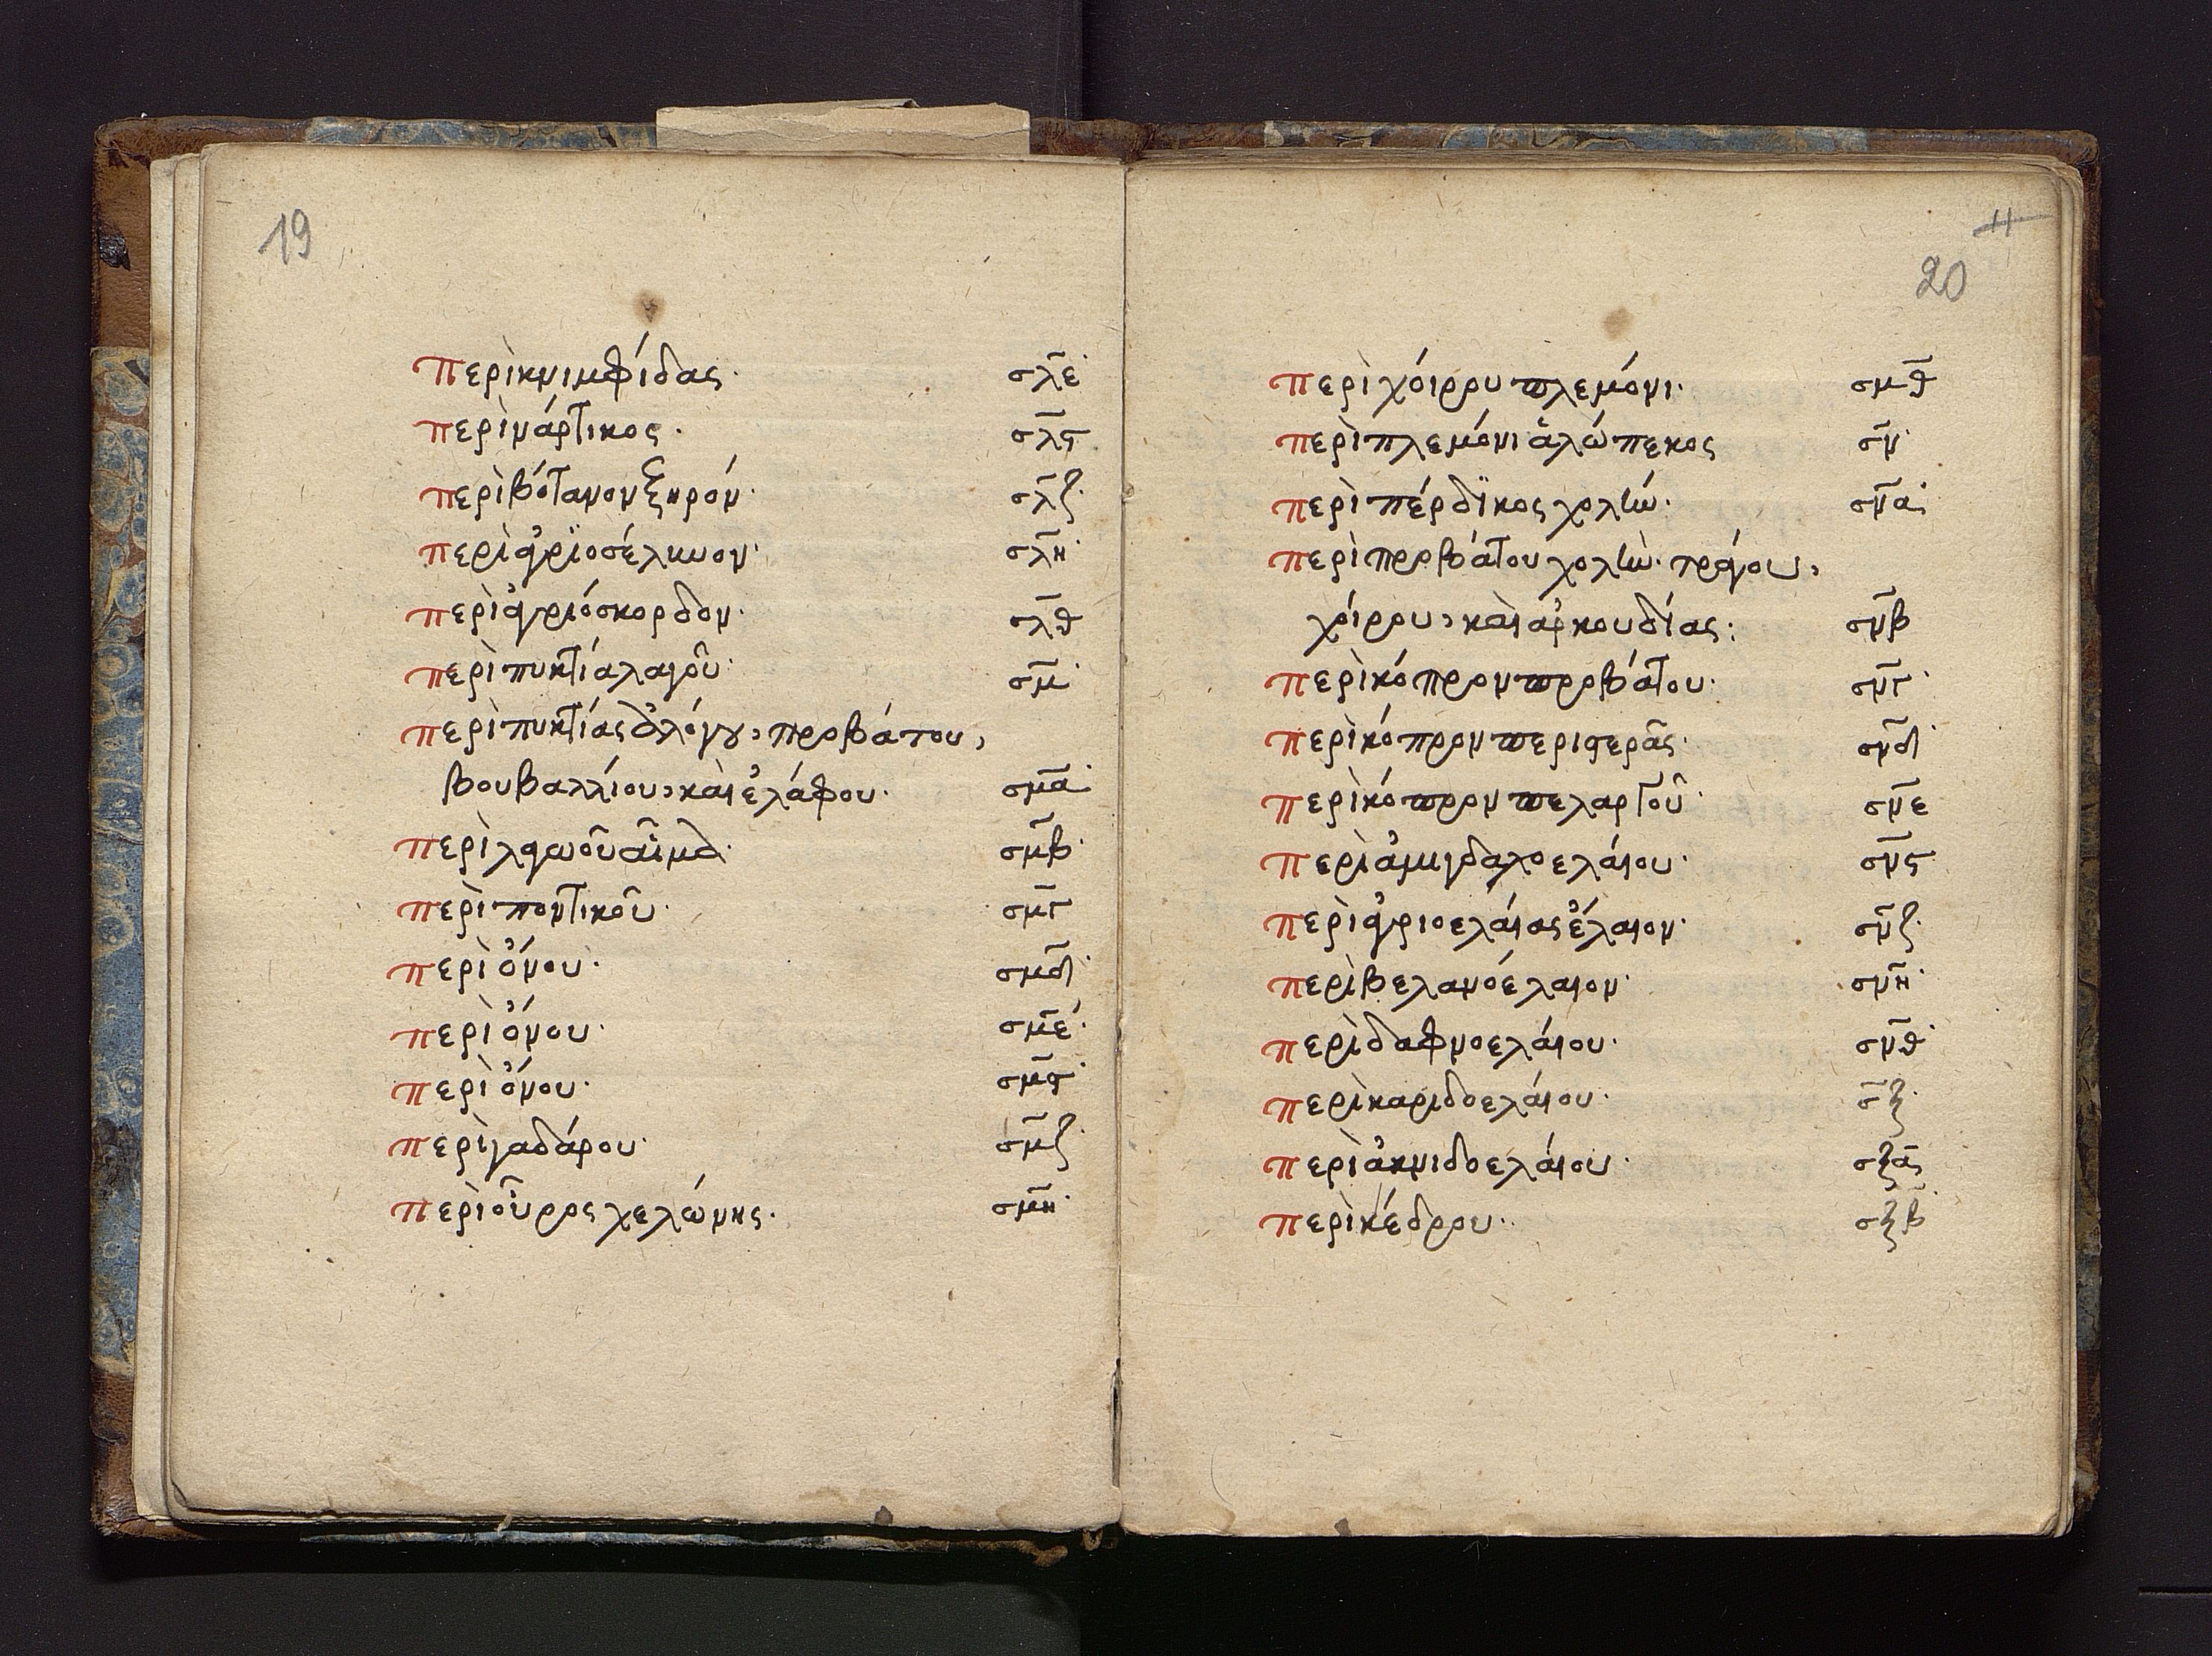 19
περὶ κνιμφίδας· σλε
περὶ νάρτικος· σλϛ
περὶ βότανον ξηρόν· σλζ
περὶ ἀγρϊοσέλινον· σλη
περὶ ἀγριόσκορδον· σλθ
περὶ πυκτία λαγοῦ· σμ
περὶ πυκτίας ἀλόγου, προβάτου,
βουβαλλίου, καὶ ἐλάφου· σμα
περὶ λαγωοῦ αἷμα· σμβ
περὶ ποντικοῦ· σμγ
περὶ ὄνου· σμδ
περὶ ὄνου· σμε
περὶ ὄνου· σμϛ
περὶ γαδάρου· σμζ
περὶ οὖρος χελώνης· σμη
11
20
περὶ χόιρου πλεμόνι· σμθ
περὶ πλεμόνι ἀλώπεκος σν
περὶ πέρδϊκος χολὴν· σνα
περὶ προβάτου χολὴν· τράγου,
χόιρου, καὶ αρκουδίας: σνβ
περὶ κόπρον προβάτου· σνγ
περὶ κόπρον περιστερᾶς· σνδ
περὶ κόπρον πελαργοῦ· σνε
περὶ ἀμιγδαλοελάιου· σνϛ
περὶ ἀγριοελάιας ἔλαιον· σνζ
περὶ βελανοέλαιον· σνη
περὶ δαφνοελάιου· σνθ
περὶ καριδοελάιου· σξ
περὶ ἀκνιδοελάιου· σξα
περὶ κέδρου· σξβ